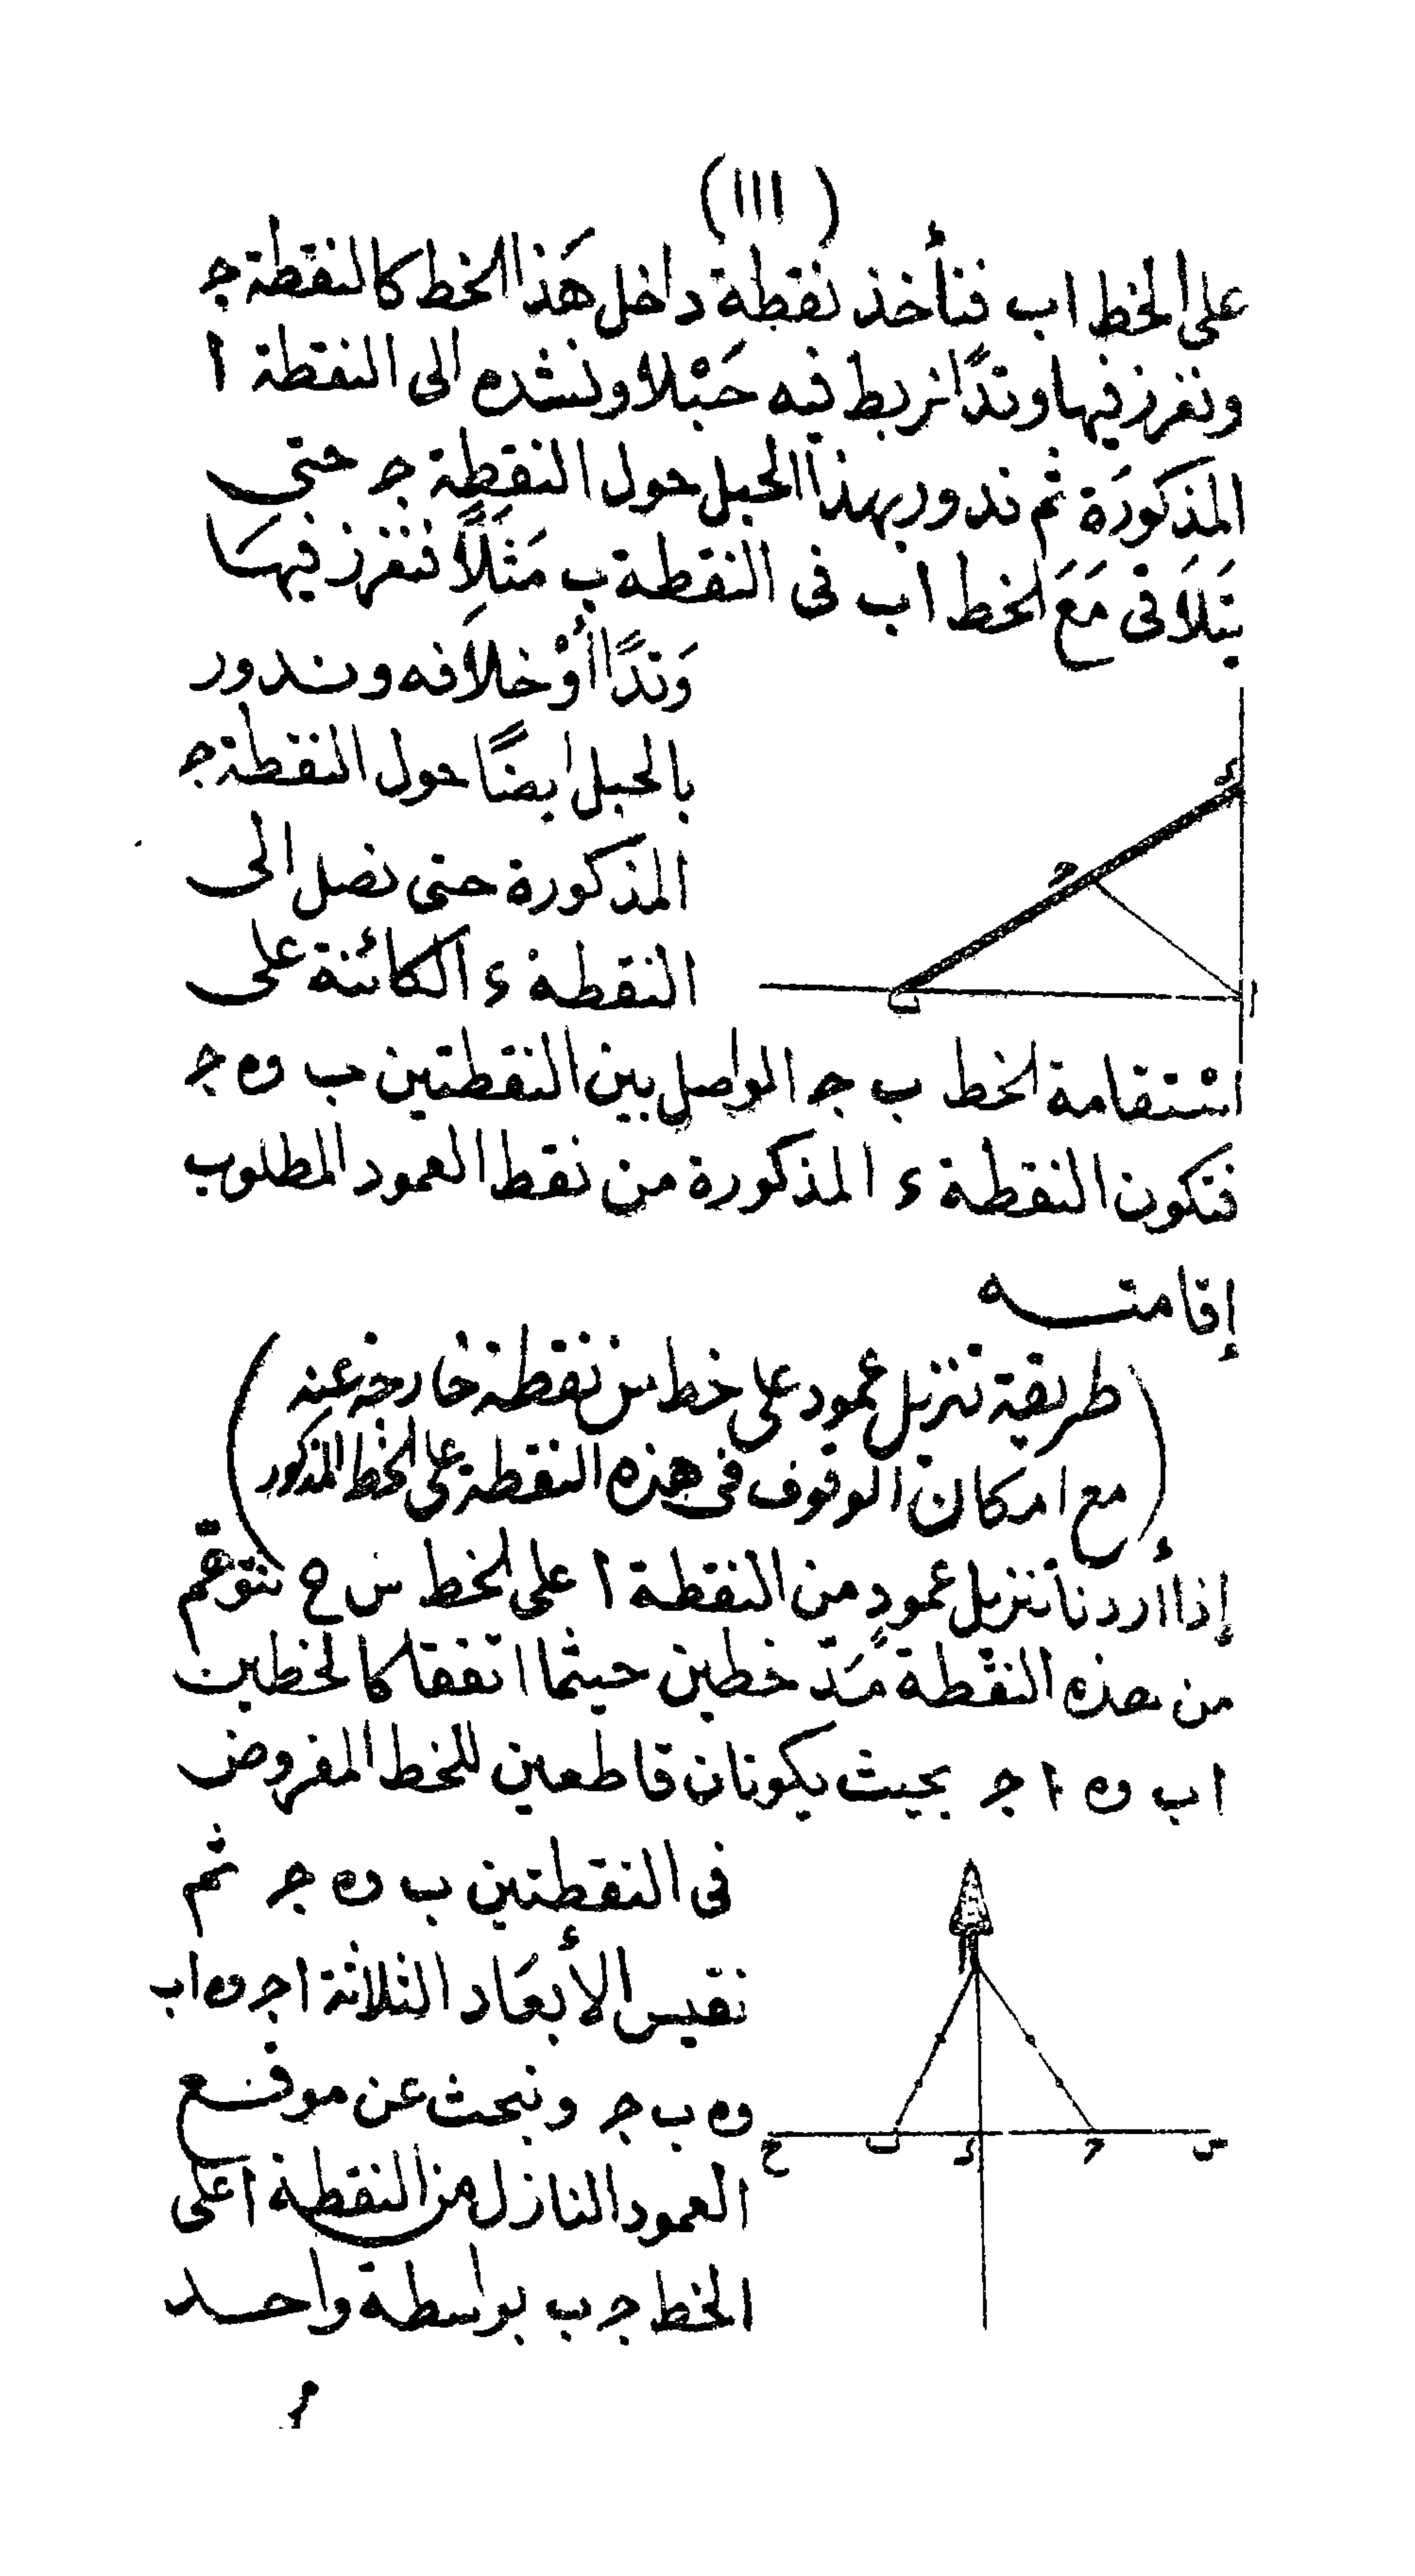 (١١١)
على الخط اب فنأخذ نقطة داخل هَذا الخط كالنقطة ج
ونغرز فيها وتدًا نربط فيه حَبْلا ونشده الى النقطة ا
المذكورَة ثم ندور بهذا الحبل حول النقطة ج حتى
يَتلاَقى مَعَ الخط اب فى النقطة ب مَثَلاً فنغرز فيهَا
وَتدًا أَوْ خلاَفه وندور
بالحبل ايضًا حول النقطة ج
المذكورة حتى نصل الى
النقطة ء الكائنة على
ء
ج
ب
ا
اسْتقامة الخط ب ج الواصل بين النقطتين ب وه ج
فتكون النقطة ء المذكورة من نقط العمود المطلوب
إقامته
(طريقة تنزيل عمود على خط من نقطة خارجه عنه
مع امكان الوقوف فى هذه النقطة على الخط المذكور)
إذا أردنا تنزيل عمودٍ من النقطة ا على الخط س ح نتوهم
من هذه النقْطة مَدّ خطين حيثما اتفقا كالخطين
اب وه ا ج بحيث يكونان قاطعين للخط المفروض
فى النقطتين ب وه ج ثم
نقيس الأبعَاد الثلاثة ا ج وه اب
وه ب ج ونبحث عن موقع
العمود النازل من النقطة ا على
الخط ج ب بواسطة واحد
ح ب ء ج س